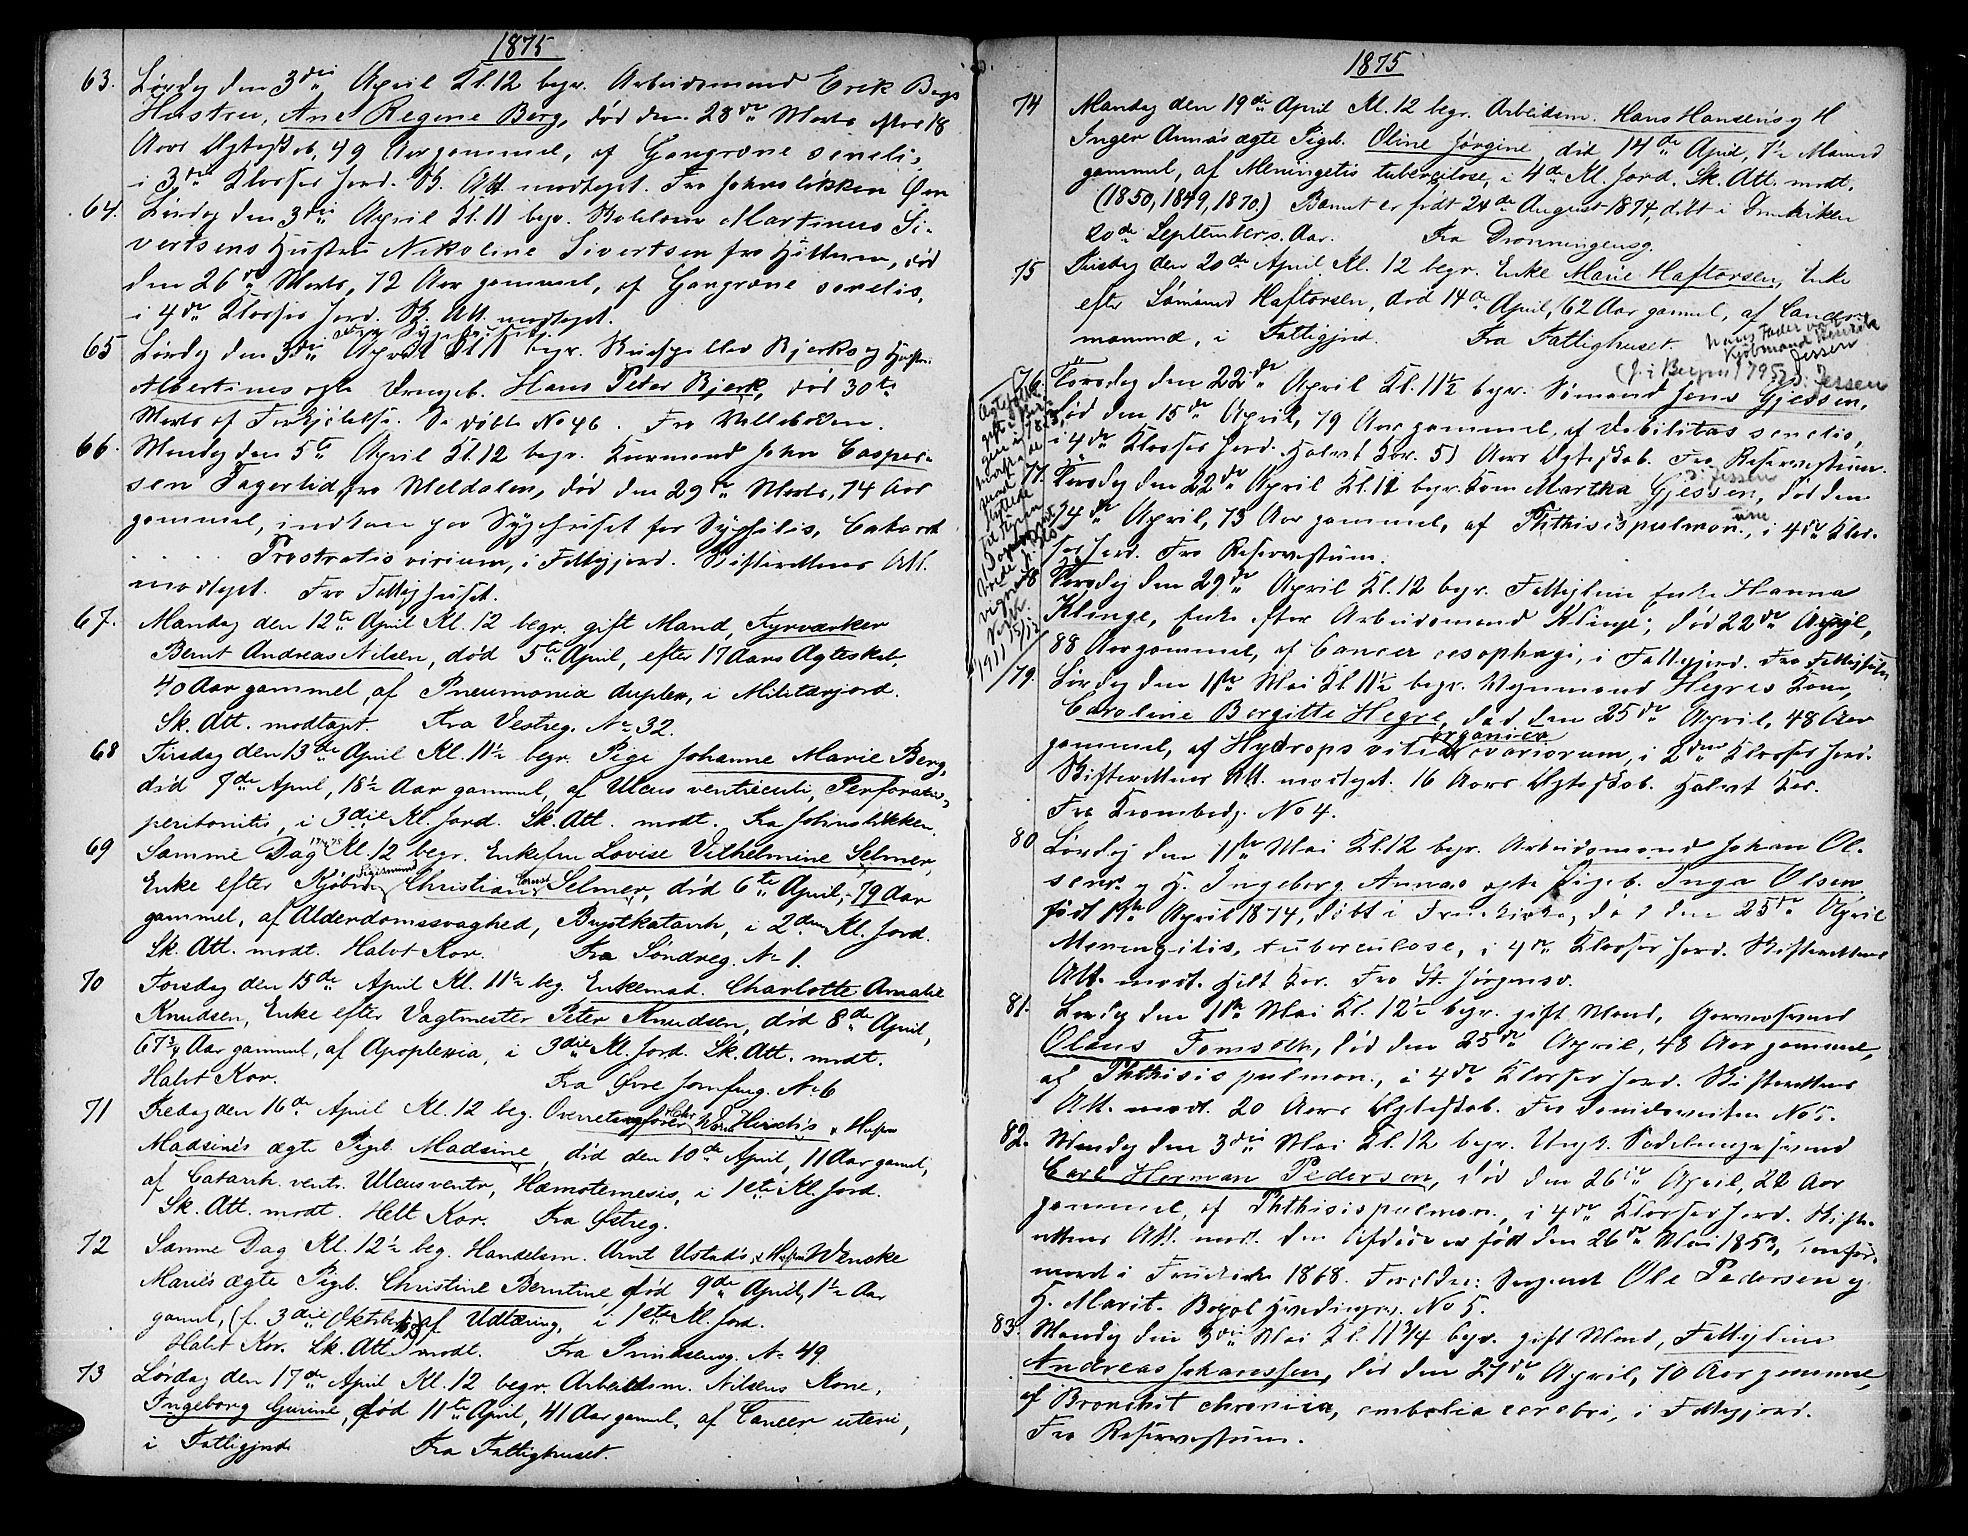 1875
63. Lørdag den 3die April Kl. 12 begr. Arbeidsmand Erik Bergs
Hustru, Ane Regine Berg, død den 28de Marts efter 18
Aars Ægteskab, 49 Aar gammel, af Gangræne senelis
i 3die Klasses Jord. Sk. Att. modtaget. Fra Johnsløkken Øen
64. Lørdag den 3die April Kl. 11 begr. Martinus Si-
vertsens Hustru Nikoline Sivertsen fra Hitteren, død
den 26de Marts, 72 Aar gammel, af Gangræne senelis,
i 4de Klasses Jord. Sk. Att. modtaget.
65 Lørdag den 3die April Kl. 11 begr. Bjerks og Hustru
Albertines ægte Drengeb. Hans Peder Bjerk, død 30te
Marts af Forkjølelse. Se døbte No 46. Fra
66. Mandag den 5te April Kl. 12 begr. John Casper-
sen Fagerlid, fra Meldalen, død den 29de Marts, 74 Aar
gammel, indkom paa Sygehuset for Syphilis, Catarrh
. . . . . Prostratio virium, i Fattigjord. Skifterettens Att.
modtaget. Fra Fattighuset.
67. Mandag den 12te April Kl. 12 begr. gift Mand, Fyrværker
Bernt Andreas Nilsen, død 5te April, efter 17 Aars Ægteskab,
40 Aar gammel, af Pneumonia duplex, i Militærjord.
Sk. Att. modtaget. Fra Vestreg. No 32.
68 Tirsdag den 13de April Kl. 11½ begr. Pige Johanne Marie Berg,
død 7de April, 18½ Aar gammel, af Ulcus ventriculi, Perforativ-
peritonitis, i 3die Kl. Jord. Sk. Att. modt. Fra Johnsløkken.
69 Samme Dag Kl. 12 begr. Enkefru Lovise Vilhelmine Selmer,
Enke efter Kjøbm. Sigismund Christian Ernst Selmer, død 6te April, 79 Aar
gammel, af Alderdomssvaghed, Brystkatarrh, i 2den Kl. Jord.
Sk. Att. modt. Halvt Kor. Fra Søndreg. No 1.
70 Torsdag den 15de April Kl. 11½ beg. Enkemad. Charlotte Amalie
Knudsen, Enke efter Vagtmester Peter Knudsen, død 8de April,
67¾ Aar gammel, af Apoplexia, i 3die Kl. Jord. Sk. Att. modt.
Halvt Kor. Fra Øvre Jomfrug. No 6
71 Fredag den 16de April Kl. 12 beg. Overretssagfører Hirsch's & Hustru
Madsine's ægte Pigeb. Madsine, død den 10de April, 11 Aar gamel,
af Catarrh. ventr. Ulcus ventr, Hæmotemesis, i 1ste Kl. Jord.
Sk. Att. modt. Helt Kor. Fra Østreg.
72 Samme Dag Kl. 12½ beg. Handelsm. Arnt Ustads & Hustru Wenske
Marie's ægte Pigeb. Christine Berntine, død 9de April, 1½ Aar
gamel, (f. 3die Oktober 73) af Udtæring, i 1ste Kl. Jord.
Halvt Kor. Sk. Att. modt. Fra Prindsensg. No 49.
73 Lørdag den 17de April Kl. 12 begr. Arbeidsm. Nilsens Kone,
Ingeborg Gurine, død 11te April, 41 Aar gamel, af Cancer uteri,
i Fattigjord. Fra Fattighuset.
1875
74 Mandag den 19de April Kl. 12 begr. Arbeidsm. Hans Hansens og H
Inger Annas ægte Pigeb. Oline Jørgine død 14de April, 7½ Maaned
gammel, af Meningitis tuberculose, i 4de Kl. Jord. Sk. Att. modt.
(1850, 1849, 1870.) Barnet er født 24de August 1874, døbt i Fruekirken
20de September s. Aar. Fra Dronningensg.
75 Tirsdag den 20de April Kl. 12 begr. Enke Marie Haftorsen, Enke
efter Sømand Haftorsen, død 14de April, 62 Aar gammel, af Cancer
mammæ, i Fattigjord. Fra Fattighuset.
Hans Fader var
Kjøbmand Henrik
Jessen
(f. i Bergen 1795) ɔ: Jessen
76. Torsdag den 22de April Kl. 11½ begr. Sømand Jens Gjessen,
død den 15de April, 79 Aar gammel, af Debilitas senelis,
i 4de Klasses Jord. Halvt Kor. 51 Aars Ægteskab. Fra Reservestuen.
ɔ: Jessen
77. Torsdag den 22de April Kl. 12 begr. Kone Martha Gjessen, død den
24de April, 73 Aar gammel, af Phthisis pulmon., i 4de Klas-
ses Jord. Fra Reservestuen.
78 Torsdag den 29de April Kl. 12 begr. Fattiglem Enke Hanna
Klinge, Enke efter Arbeidsmand Klinge, død 22de April,
88 Aar gammel, af Cancer oesophagi, i Fattigjord. Fra Fattighuset
79. Lørdag den 1ste Mai Kl. 11½ begr. Vognmand Hegres Kone,
Caroline Bergitte Hegre, død den 25de April, 48 Aar
gammel, af Hydrops vitia organica ovariorum, i 2den Klasses Jord.
Skifterettens Att. modtaget. 16 Aars Ægteskab. Halvt Kor.
Fra Krambodg. No 4.
80. Lørdag den 1ste Mai Kl. 12 begr. Arbeidsmand Johan Ol-
sens og H. Ingeborg Annas ægte Pigeb. Inga Olsen
født 1ste April 1874, døbt i Fruekirke, død den 25de April
Meningitis, tuberculose, i 4de Klasses Jord. Skifterettens
Att. modt. Helt Kor. Fra St. Jørgensv.
81. Lørdag den 1ste Mai Kl. 12½ begr. gift Mand, Garversvend
Olaus Tomseth, død den 25de April, 48 Aar gammel,
af Phthisis pulmon., i 4de Klasses Jord. Skifterettens
Att. modt. 20 Aars Ægteskab. Fra No 5.
82. Mandag den 3die Mai Kl. 12 begr. Ungk. Sadelmagersvend
Carl Herman Pedersen, død den 26de April, 22 Aar
gammel, af Phthisis pulmon., i 4de Klasses Jord. Skifte-
rettens Att. modt. Den afdøde er født den 26de Mai 1853, konfir-
meret i Fruekirke 1868. Forældre: Sergeant Ole Pedersen og
H. Marit. No 5.
83. Mandag den 3die Mai Kl. 11¾ begr. gift Mand, Fattiglem
Andreas Johanssen, død den 27de April, 70 Aar gammel,
af Bronchit chronica, embolia cerebri, i Fattigjord.
Fra Reservestuen.